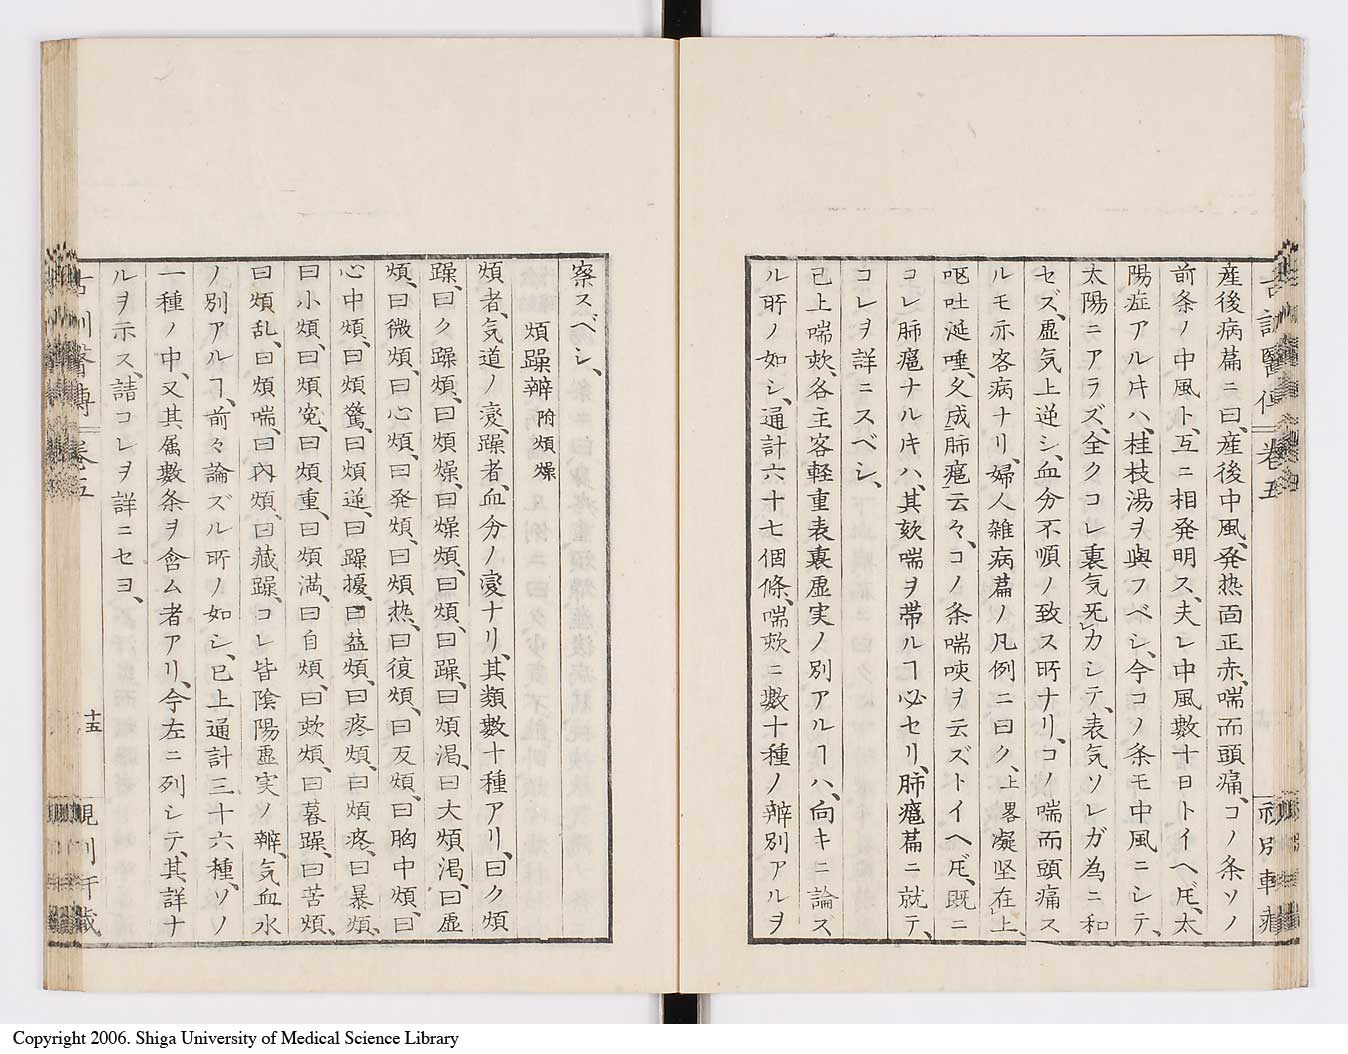 産後病篇ニ曰、産後中風、発热面正赤、喘而頭痛、コノ条ソノ
前条ノ中風ト、互ニ相発明ス、夫レ中風數十日トイヘ𪜈、太
陽症アル𪜈ハ、桂枝湯ヲ與フベシ、今コノ条モ中風ニシテ、
太陽ニアラズ、全クコレ裏気死カシテ、表気ソレガ為ニ和
セズ、虚気上逆シ、血分不順ノ致ス所ナリ、コノ喘而頭痛ス
ルモ亦客病ナリ、婦人雑病篇ノ凡例ニ曰ク、上畧凝坚在上、
呕吐涎唾、久成肺疽云々、コノ条喘咳ヲ云ズトイヘ𪜈、既ニ
コレ肺癰ナル𪜈ハ、其欬喘ヲ帯ルヿ必セリ、肺癰篇ニ就テ、
コレヲ詳ニスベシ、
已上喘欬、各主客軽重表裏虚実ノ別アルヿハ、向キニ論ズ
ル所ノ如シ、通計六十七個條、喘欬ニ數十種ノ辨別アルヲ
古訓醫傳 卷五
察スベシ、
煩躁辨 附煩燥
煩者、気道ノ変、躁者、血分ノ変ナリ、其類數十種アリ、曰ク煩
躁、曰ク躁煩、曰煩燥、曰燥煩、曰煩、曰躁、曰煩渇、曰大煩渇、曰虚
煩、曰微煩、曰心煩、曰発煩、曰煩热、曰復煩、曰反煩、曰胸中煩、曰
心中煩、曰煩驚、曰煩逆、曰躁擾、曰益煩、曰疼煩、曰煩疼、曰暴煩、
曰小煩、曰煩寃、曰煩重、曰煩満、曰自煩、曰欬煩、曰暮躁、曰苦煩、
曰煩乱、曰煩喘、曰內煩、曰藏躁、コレ皆陰陽虚実ノ辨、気血水
ノ別アルヿ、前々論ズル所ノ如シ、已上通計三十六種、ソノ
一種ノ中、又其属數条ヲ含ム者アリ、今左ニ列シテ、其詳ナ
ルヲ示ス、請コレヲ詳ニセヨ、
卷五
十五